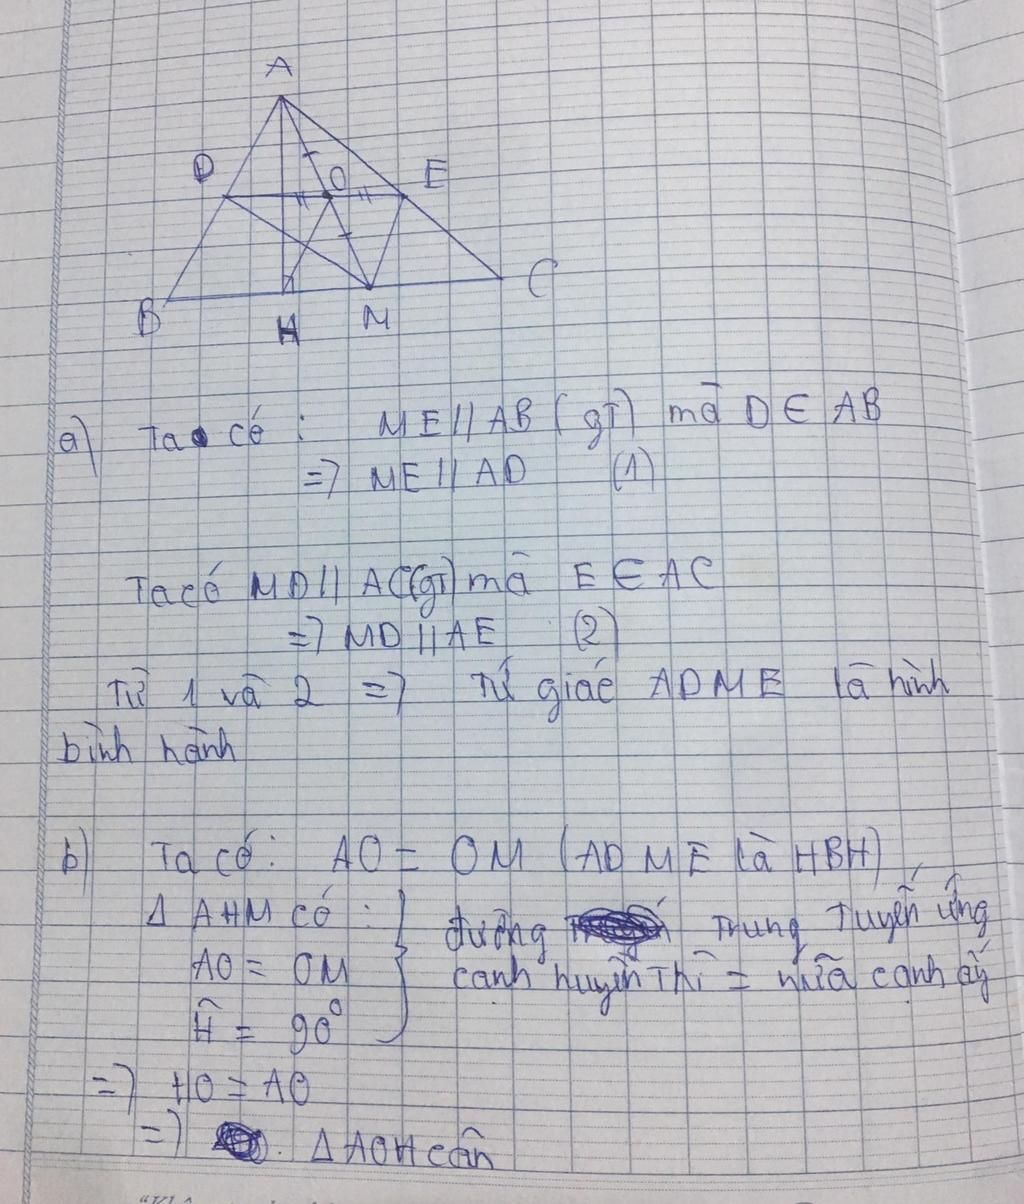 A
D
O
E
B
H
M
C
a) Ta có : ME // AB (gt) mà D ∈ AB
=> ME // AD (1)
Ta có MD // AC (gt) mà E ∈ AC
=> MD // AE (2)
Từ 1 và 2 => Tứ giác ADME là hình
bình hành
b) Ta có: AO = OM (ADME là HBH)
Δ AHM có : đường trung tuyến ứng
AO = OM cạnh huyền thì = nửa cạnh ấy
Ĥ = 90°
=> HO = AO
=> Δ AOH cân